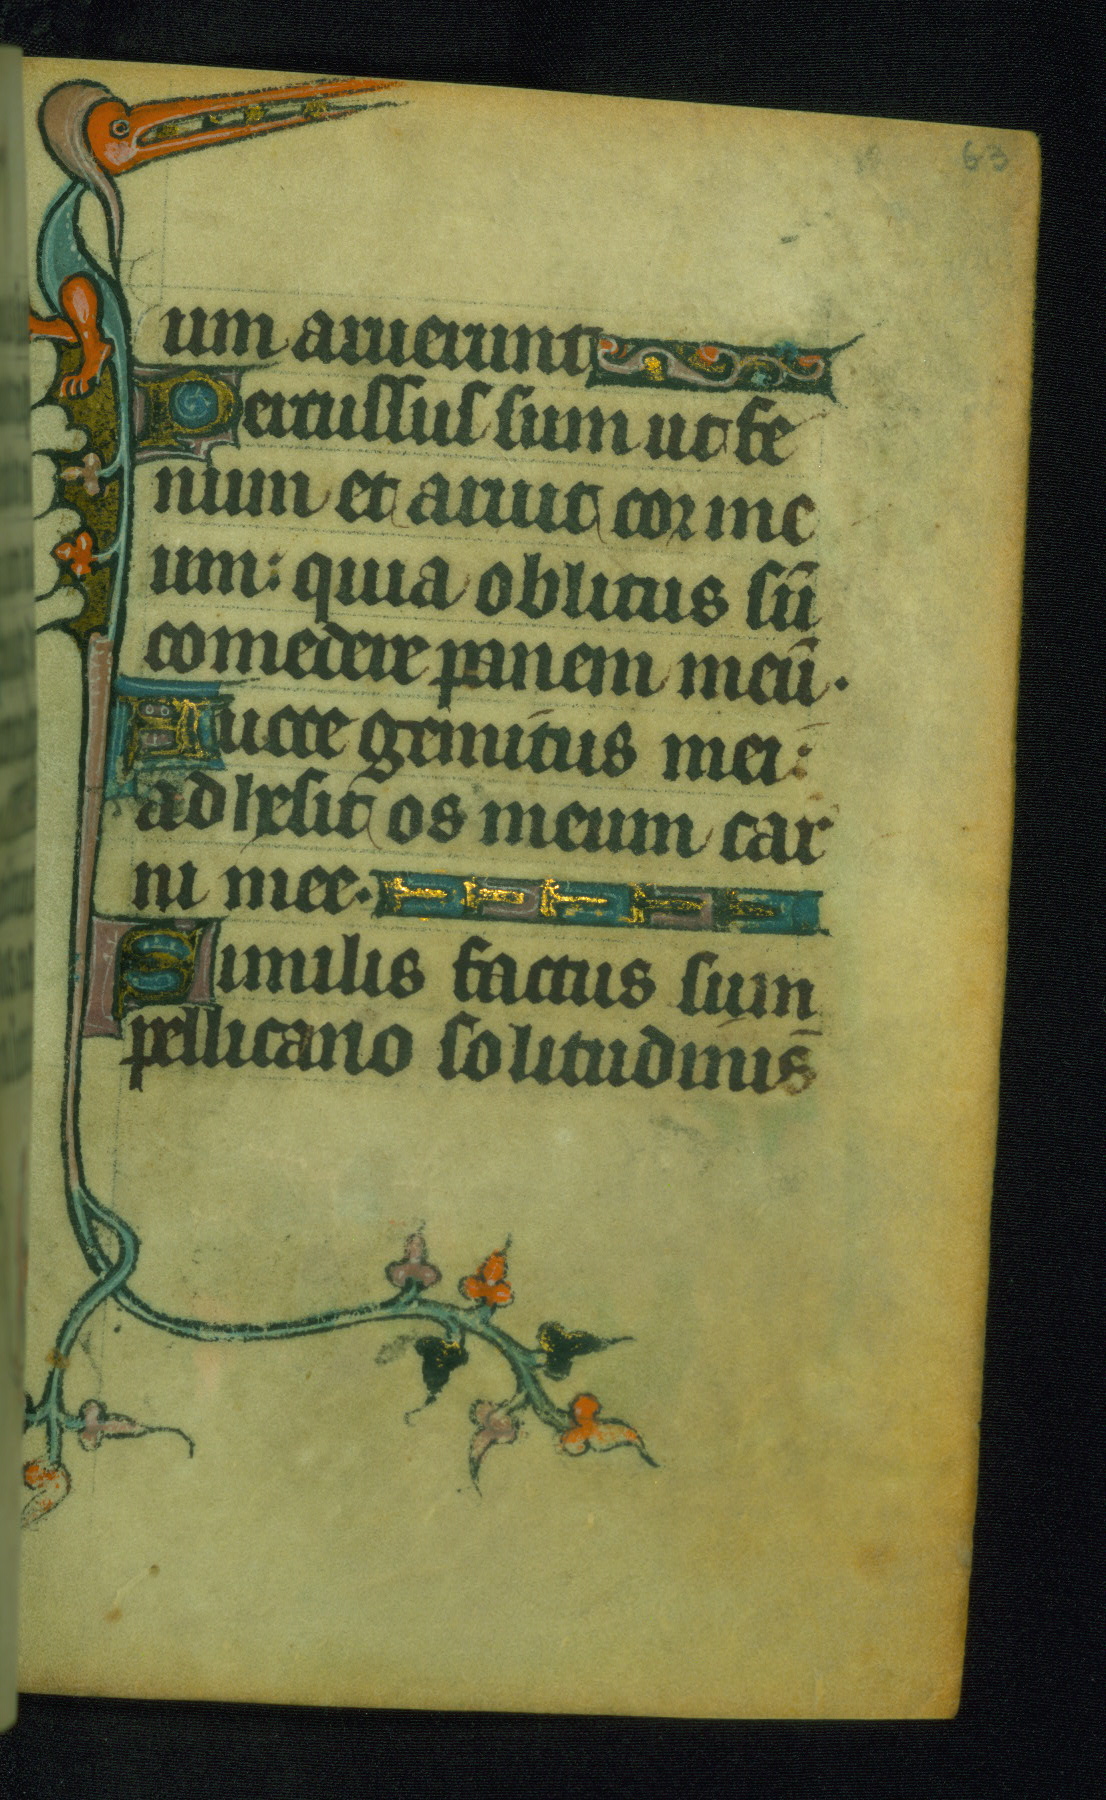 63
um aruerunt
Percussus sum ut fe
num et aruit cor me
um: quia oblitus sū
comedere panem meū.
A uoce gemitus mei:
adhesit os meum car
ni mee.
Similis factus sum
pellicano solitudinis